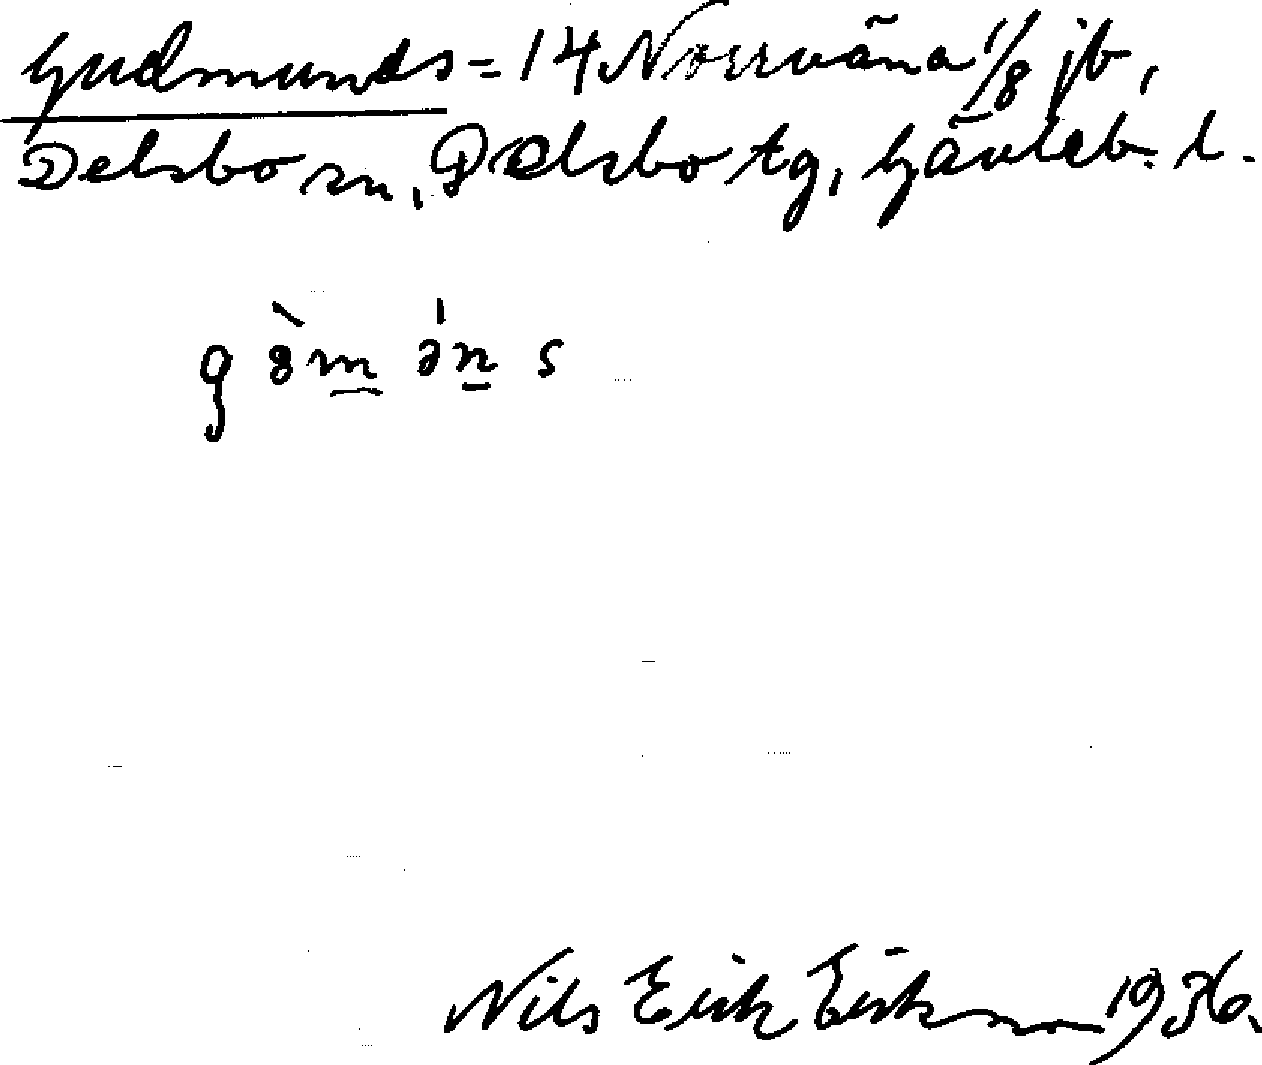 Gudmunds = 14 Norrväna 1/8 jb,
Delsbo sn, Delsbo tg, Gävleb. l.
g ȣ̀m ə́n s
Nils Erik Eriksson 1936.